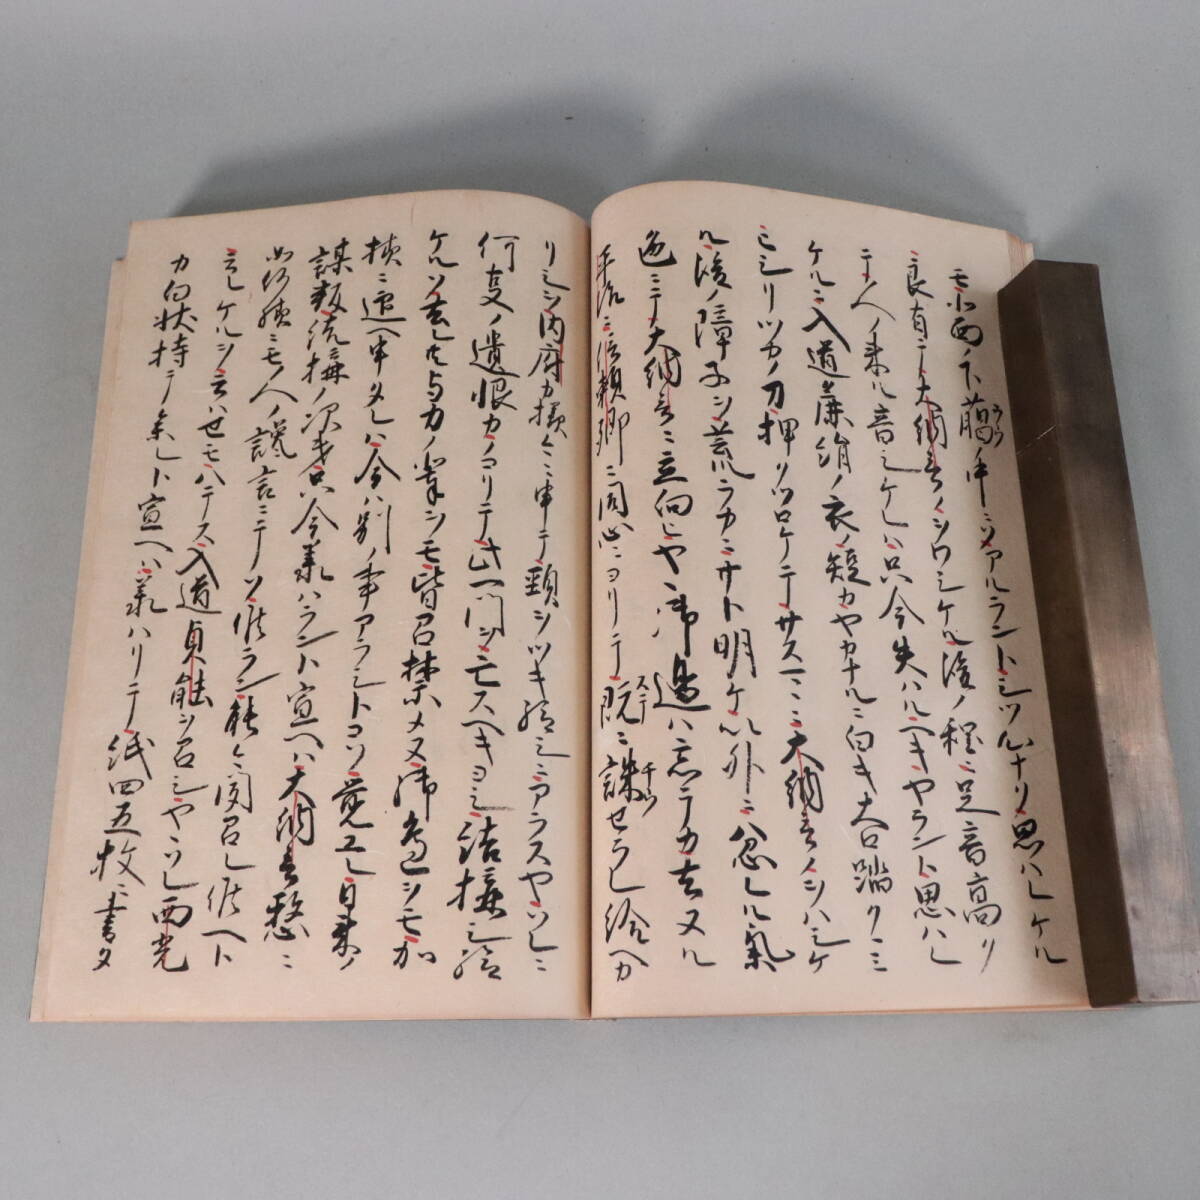 モ北面ノ下﨟ラウ中ニソアルラントミツルナリ思ハレケル
良有テ大納言ノシロミケル後ノ程ニ足音高リ
テ人ノ来ル音シケレハ只今失ハルヘキヤラント思ハレ
ケルニ入道䔥絹ノ衣ノ短カヤカナルニ白キ大口踏クミ
ヒシリツカノ刀押リツロケテサスマヽニ大納言ノシハシケ
ル後ノ障子ヲ荒ラカニサト明ケ以外ニ忿レル気
色ニテ大納言ニ立向ヒヤヽ御辺ハ忘テカ去ヌル
平治ニ信頼卿ニ同心ニヨリテ既ステニ誅チウセラレ給ヘカ
リシヲ内府カ様々ニ申テ頸ヲツキ給シニアラスヤソレニ
何事ノ遺恨カノコリテ此一門ヲ亡スヘキヨシ結構シ給
ケルソ去レハ与力ノ輩ヲモ皆召禁メヌ御辺ヲモ加
様ニ迎ヘ申タレハ今ハ別ノ事アラシトコソ覚エレ日来ノ
謀叛結構ノ次第只今承ハラント宣ヘハ大納言愁ニ
如何様ニモ人ノ讒言ニテソ候ラン能々閲召レ候ヘト
云レケルヲ云ハセモハテス入道貞能ヲ召シヤヽソレ西光
カ白状持テ参レト宣ヘハ承ハリテ紙四五枚ニ書タ